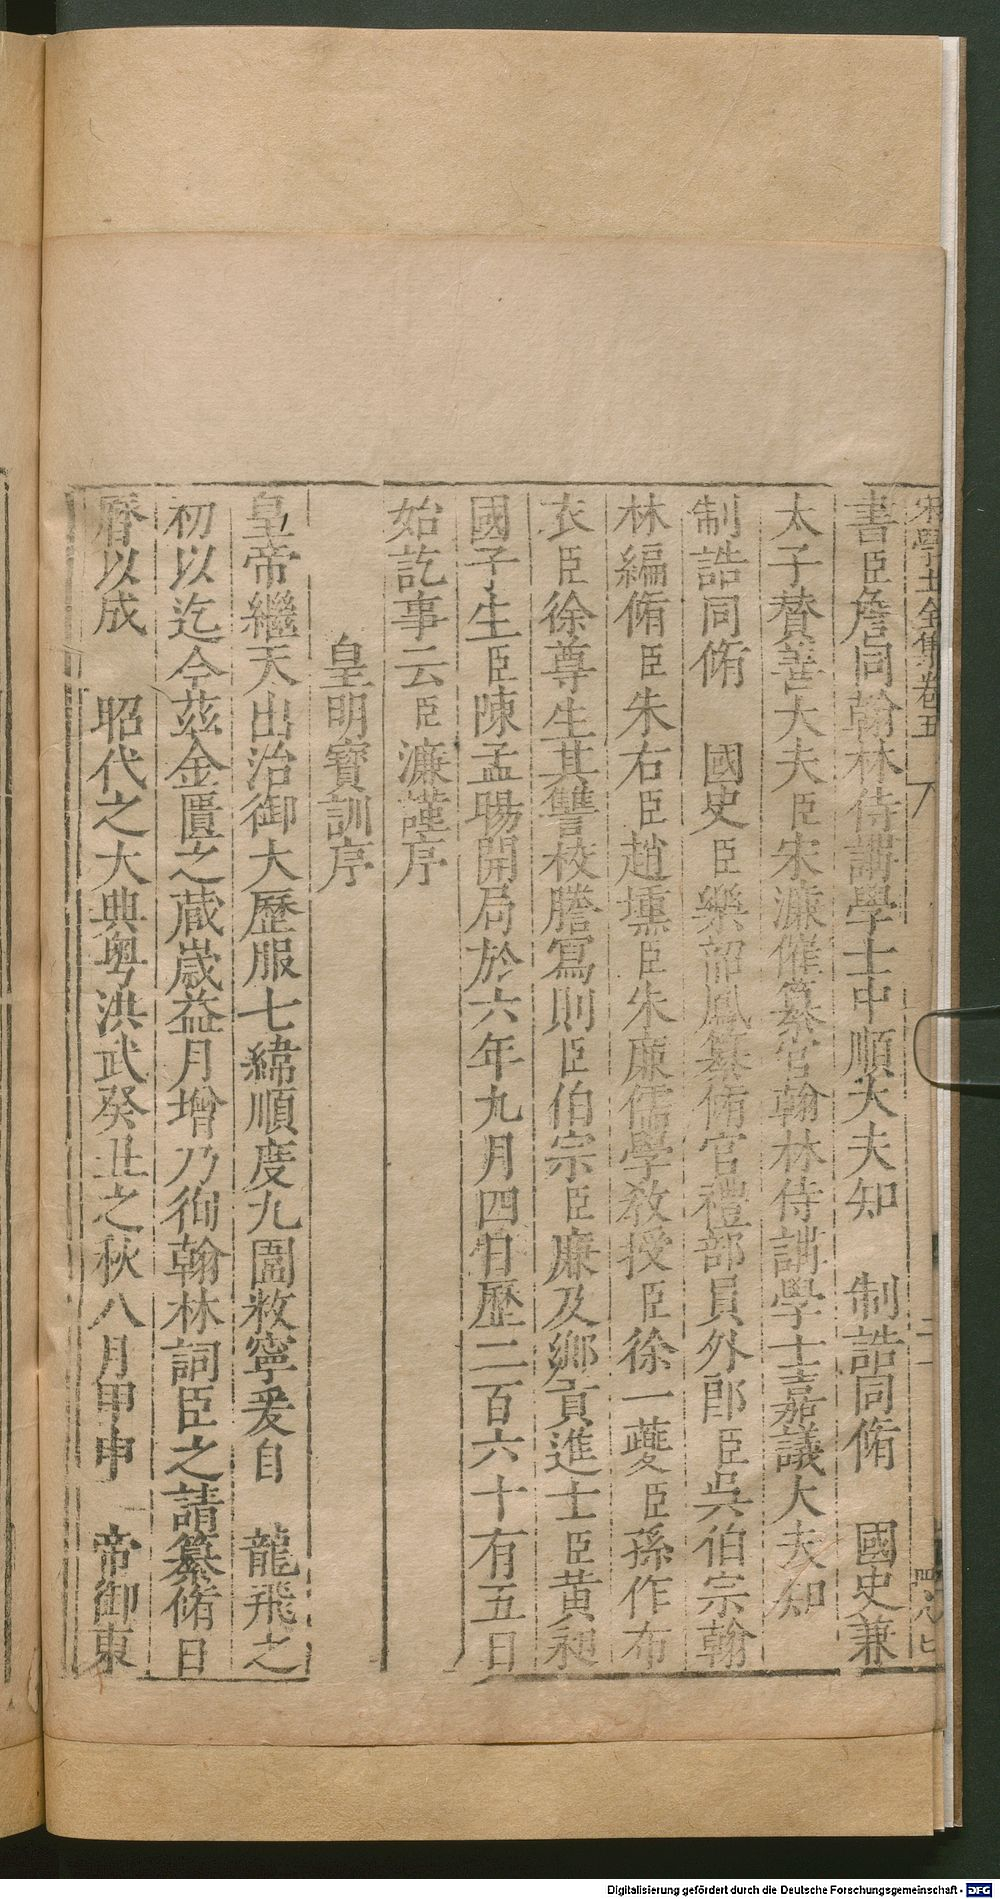 宋學士全集卷五
書臣詹同翰林侍講學士中順大夫知　制誥同脩　國史兼
太子賛善大夫臣宋濂催纂官翰林侍講學士嘉議大夫知
制誥同脩　國史臣樂韶鳳纂脩官禮部員外郎臣吳伯宗翰
林編脩臣朱右臣趙壎臣朱廉儒學教授臣徐一夔臣孫作布
衣臣徐尊生其讐校謄寫則臣伯宗臣廉及鄉貢進士臣黄昶
國子生臣陳孟暘開局於六年九月四日歷二百六十有五日
始訖事云臣濂謹序
皇明寳訓序
皇帝繼天出治御大歷服七緯順度九圍敉寧爰自　龍飛之
初以迄今茲金匱之蔵嵗益月增乃徇翰林詞臣之請纂脩日
曆以成　昭代之大典粤洪武癸丑之秋八月甲申　帝御東
Digitalisierung gefördert durch die Deutsche Forschungsgemeinschaft - DFG